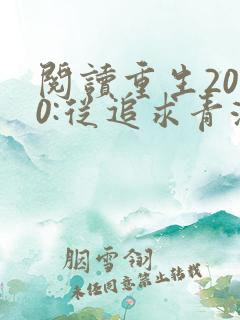 閱讀重生20
0:從追求青
胭雪翎
未經同意禁止轉載